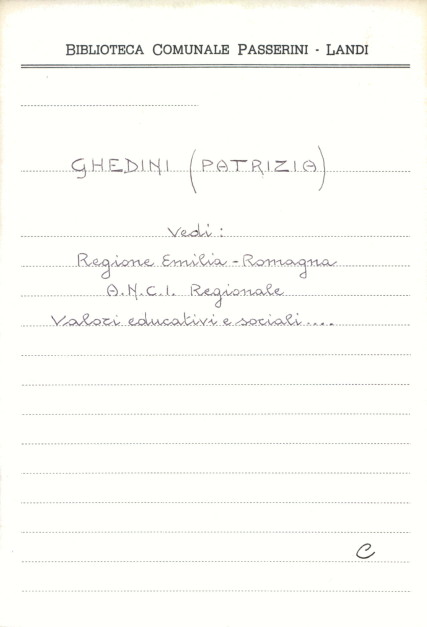 BIBLIOTECA COMUNALE PASSERINI - LANDI
GHEDINI (PATRIZIA)
Vedi:
Regione Emilia-Romagna
A.N.C.I. Regionale
Valori educativi e sociali....
C